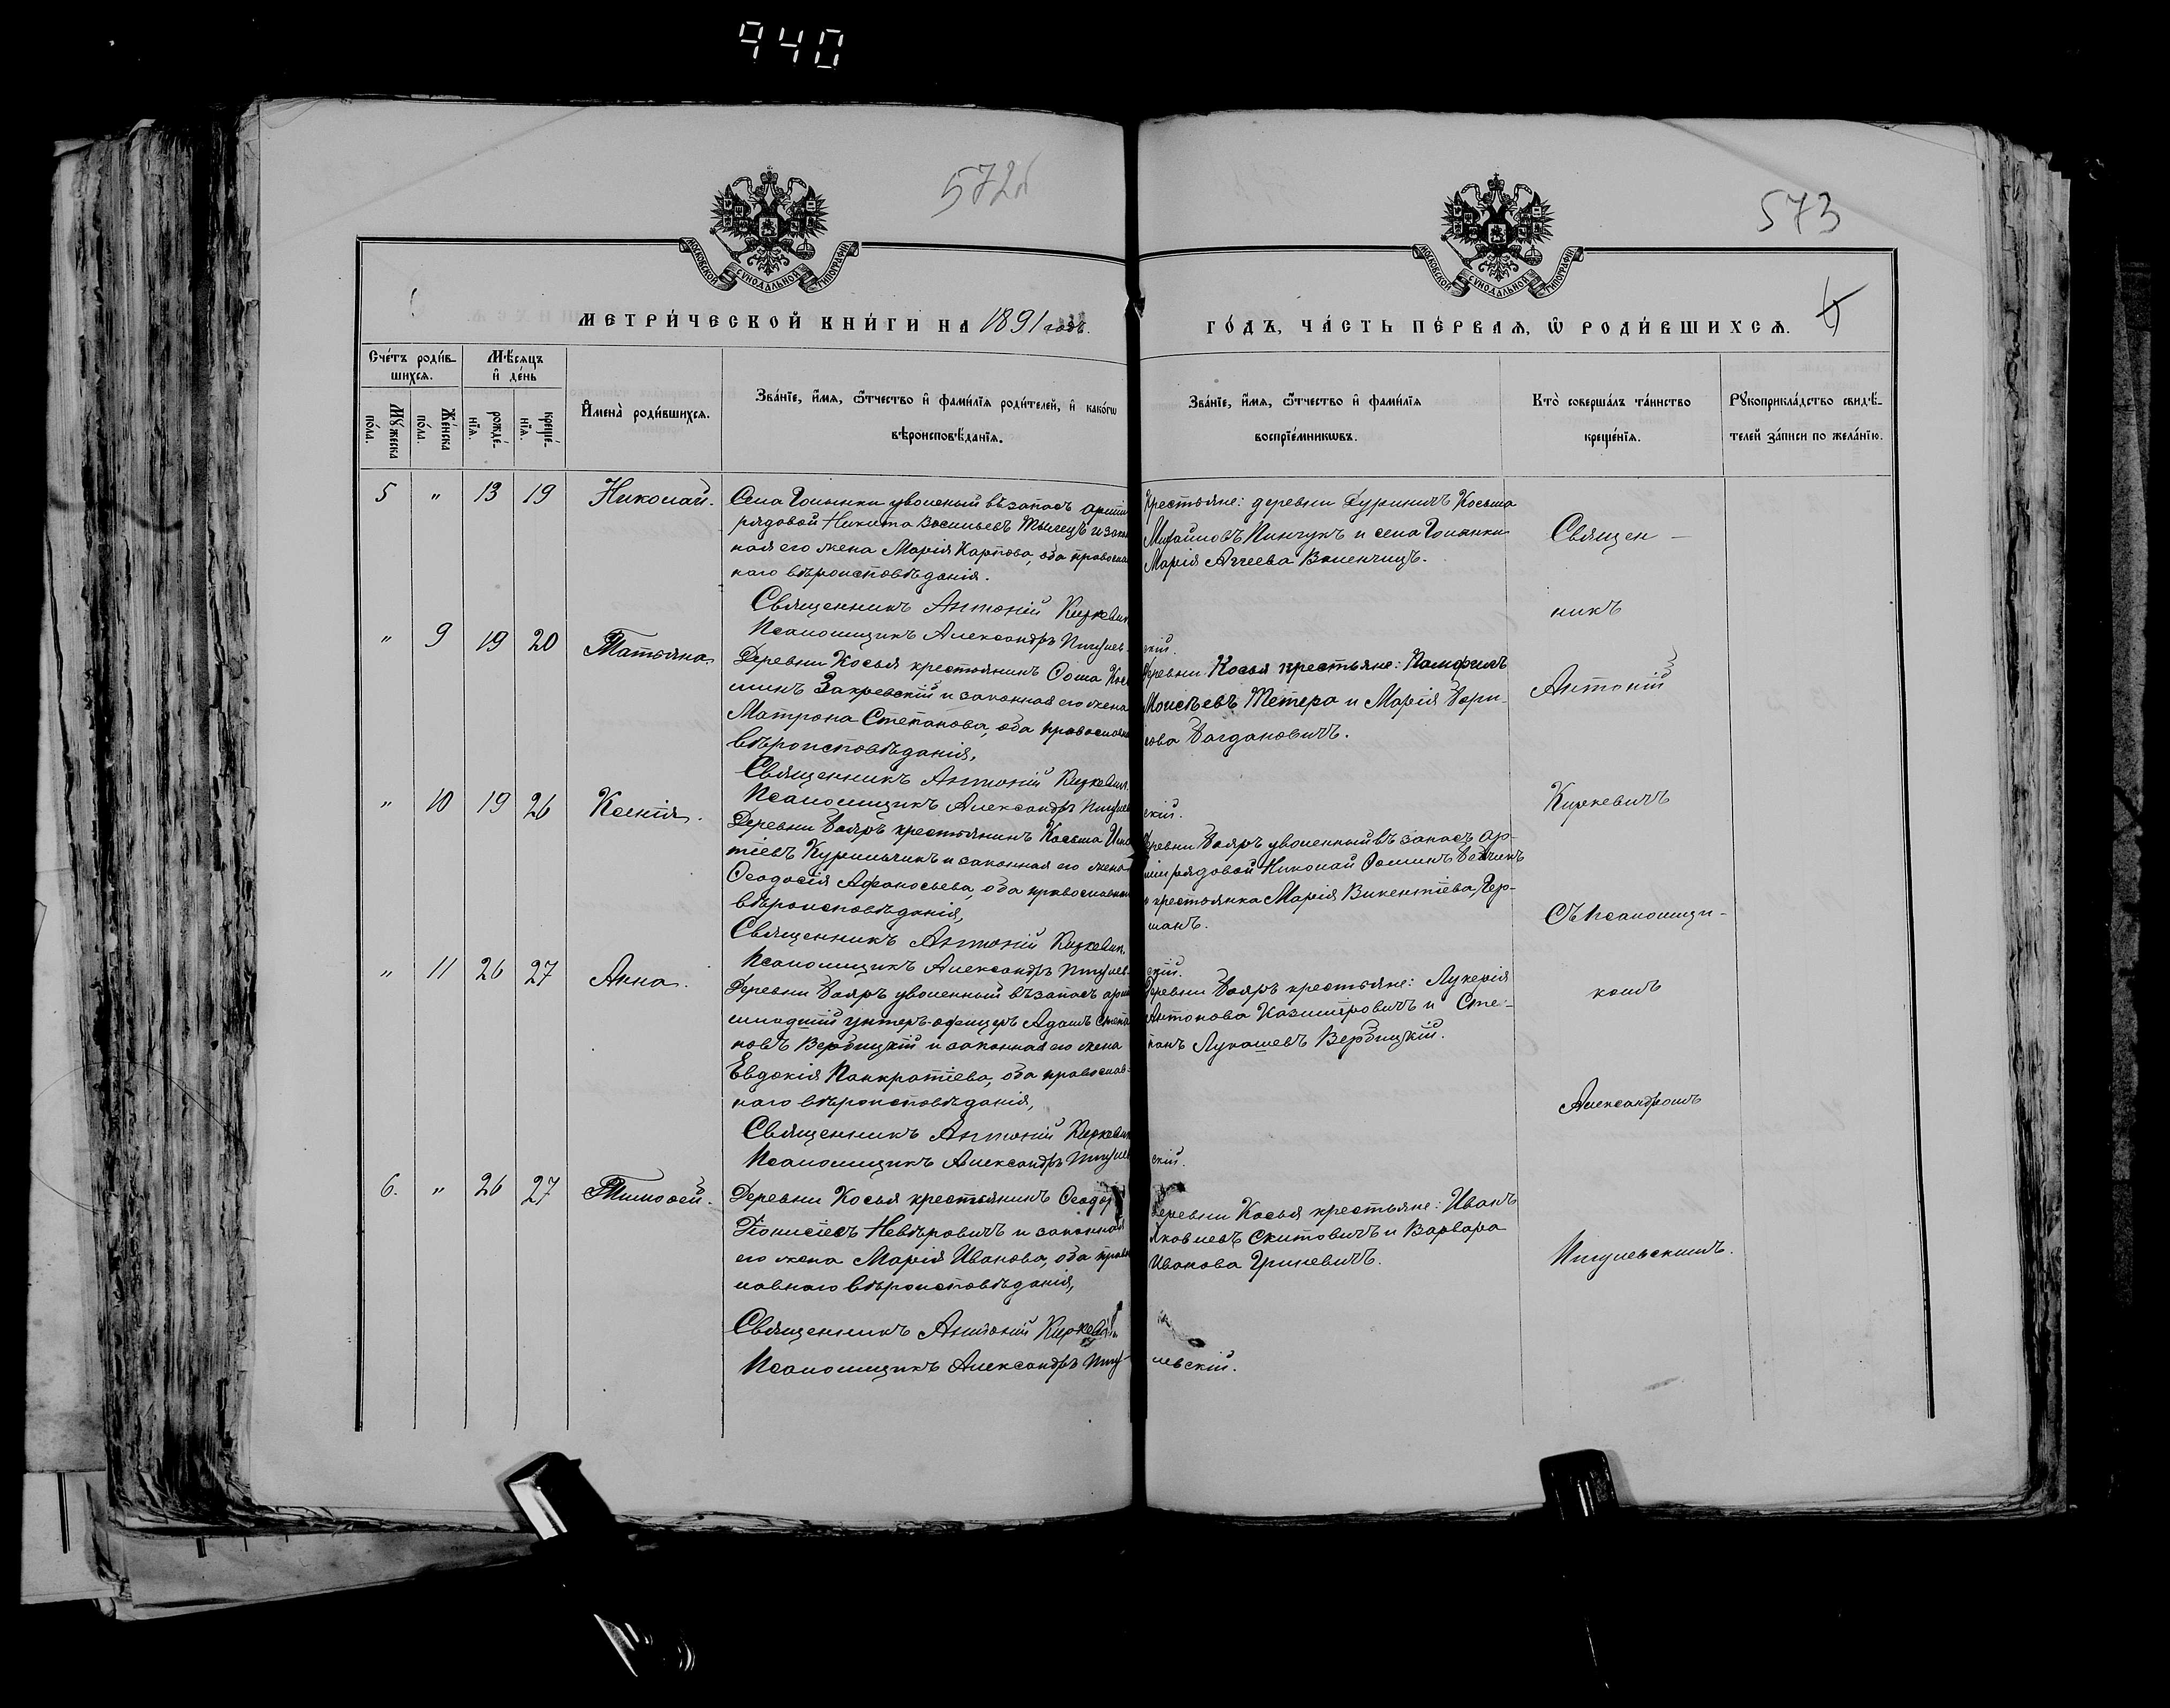 940
572об
573
МОСКОВСКОЙ СѴНОДАЛЬНОЙ ТИПОГРАФІИ
МОСКОВСКОЙ СѴНОДАЛЬНОЙ ТИПОГРАФІИ
МЕТРИ́ЧЕСКОЙ КНИ́ГИ НА 1891 годъ.
ГО́ДЪ, ЧА́СТЬ ПЕ́РВАЯ, Ѡ РОДИ́ВШИХСЯ.
Сче́тъ роди́в-
шихся.
Мѣ́сяцъ
и де́нь
Му́жеска
по́ла.
Же́нска
по́ла.
рожде́-
нїя.
креще́-
нїя.
Имена̀ роди́вшихся.
Зва́нїе, и́мя, ѻ́тчество и фами́лїя роди́телей, и како́гѡ
вѣроисповѣ́данїя.
Зва́нїе, и́мя, ѻ́тчество и фами́лїя
воспрїе́мникѡвъ.
Кто̀ соверша́лъ та́инство
креще́нїя.
Рꙋкоприкла́дство свидѣ́-
телей за́писи по жела́нїю.
5 " 13 19 Николай.
Села Голынки уволеный въ запасъ арміи
рядовой Никита Васильевъ Тылецъ и закон
ная его жена Марія Карпова, оба православ
наго вѣроисповѣданія.
Священникъ Антоній Киркевич
Псаломщикъ Александръ Пигулев-
скій.
Крестьяне: деревни Дуриничъ Косьма
Михайловъ Пинчукъ и села Голынки
Марія Аггеева Валенчицъ.
" 9 19 20 Татьяна.
Деревни Косья крестьянинъ Ѳома Кось
минъ Закревскій и законная его жена
Матрона Степанова, оба православн
вѣроисповѣданія,
Священникъ Антоній Киркевич.
Псаломщикъ Александръ Пигулев
скій.
Деревни Косья крестьяне: Памфилъ
Моисѣевъ Тетера и Марія Бори-
сова Богдановичъ.
" 10 19 26 Ксенія.
Деревни Бояръ крестьянинъ Косьма Игна
тіевъ Курильчикъ и законная его жена
Ѳеодосія Афанасьева, оба православнаго
вѣроисповѣданія,
Священникъ Антоній Киркевич.
Псаломщикъ Александръ Пигулев-
скій.
Деревни Бояръ уволенный въ запасъ ар-
міи рядовой Николай Ѳоминъ
и крестьянка Марія Викентіева Гер-
манъ.
" 11 26 27 Анна.
Деревни Бояръ уволенный въ запасъ арміи
младшій унтеръ-офицеръ Адамъ Степа
новъ Вербицкій и законная его жена
Евдокія Панкратіева, оба православ-
наго вѣроисповѣданія,
Священникъ Антоній Киркевич
Псаломщикъ Александръ Пигулев
скій.
Деревни Бояръ крестьяне: Лукерія
Антонова Казимировичъ и Сте-
панъ Лукашевъ Вербицкій.
6. " 26 27 Тимоѳей.
Деревни Косья крестьянинъ Ѳеодоръ
Діонисіевъ Невѣровичъ и законная
его жена Марія Иванова, оба право
лавнаго вѣроисповѣданія,
Священникъ Антоній Киркевич
Псаломщикъ Александръ Пигу-
левскій.
Деревни Косья крестьяне: Иванъ
Яковлевъ Скитовичъ и Варвара
Иванова Гриневичъ.
Священ-
никъ
Антоній
Киркевичъ
Съ псаломщи-
комъ
Александромъ
Пигулевскимъ.